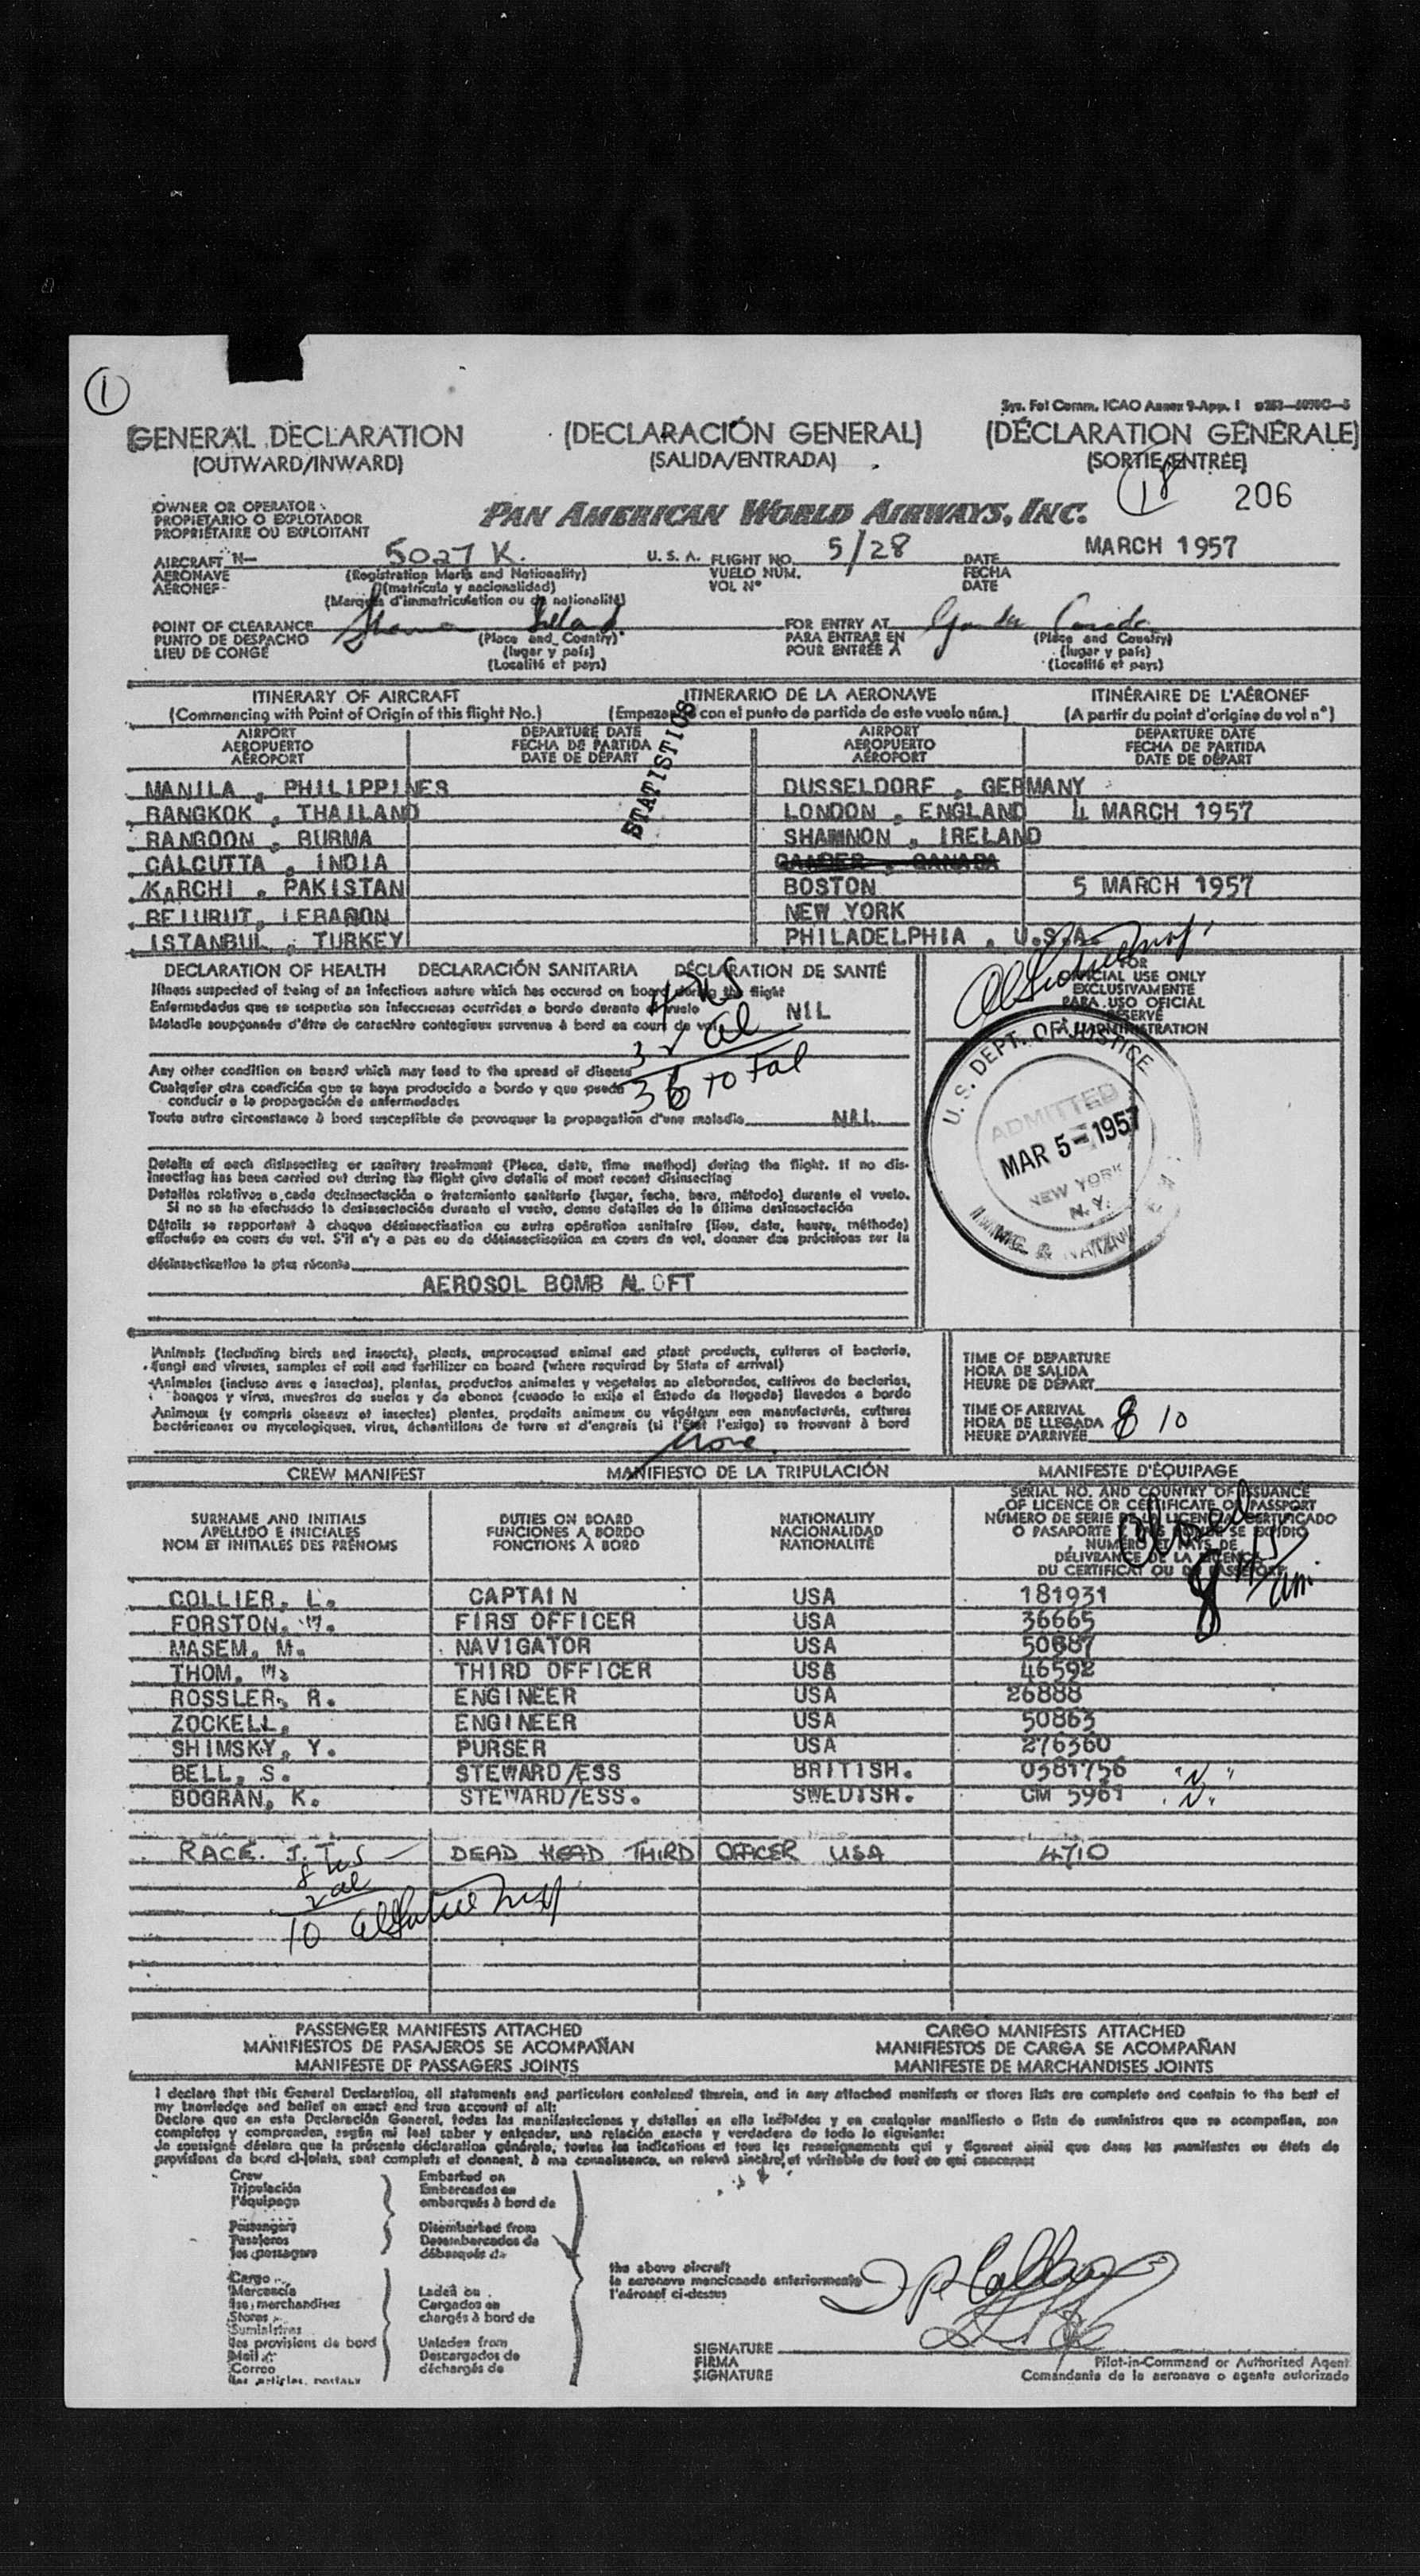 1
Sys. Fol Comm. ICAO Annex 9-App. 1
GENERAL DECLARATION (DECLARACIÓN GENERAL) (DÉCLARATION GÉNÉRALE)
(OUTWARD/INWARD) (SALIDA/ENTRADA) (SORTIE/ENTRÉE)
18 206
OWNER OR OPERATOR
PROPIETARIO O EXPLOTADOR
PROPRIÉTAIRE OU EXPLOITANT
PAN AMERICAN WORLD AIRWAYS, INC.
AIRCRAFT N- 5027 K. U. S. A. FLIGHT NO. 5/28 DATE MARCH 1957
AERONAVE (Registration Marks and Nationality) VUELO NUM. FECHA
AÉRONEF (matrícula y nacionalidad) VOL Nº DATE
(Marques d'immatriculation ou de nationalité)
POINT OF CLEARANCE Ireland FOR ENTRY AT
PUNTO DE DESPACHO (Place and Country) PARA ENTRAR EN (Place and Country)
LIEU DE CONGÉ (lugar y país) POUR ENTRÉE À (lugar y país)
(Localité et pays) (Localité et pays)
ITINERARY OF AIRCRAFT ITINERARIO DE LA AERONAVE ITINÉRAIRE DE L'AÉRONEF
(Commencing with Point of Origin of this flight No.) (Empezando con el punto de partida de este vuelo núm.) (A partir du point d'origine du vol nº)
AIRPORT DEPARTURE DATE AIRPORT DEPARTURE DATE
AEROPUERTO FECHA DE PARTIDA AEROPUERTO FECHA DE PARTIDA
AÉROPORT DATE DE DÉPART AÉROPORT DATE DE DÉPART
STATISTICS
MANILA , PHILIPPINES DUSSELDORF , GERMANY
BANGKOK , THAILAND LONDON , ENGLAND 4 MARCH 1957
RANGOON , BURMA SHANNON , IRELAND
CALCUTTA , INDIA GANDER , CANADA
KARCHI , PAKISTAN BOSTON 5 MARCH 1957
BEIURUT, LEBANON NEW YORK
ISTANBUL , TURKEY PHILADELPHIA , U.S.A.
DECLARATION OF HEALTH DECLARACIÓN SANITARIA DÉCLARATION DE SANTÉ
FOR
OFFICIAL USE ONLY
EXCLUSIVAMENTE
PARA USO OFICIAL
RÉSERVÉ
À L'ADMINISTRATION
Illness suspected of being of an infectious nature which has occured on board during the flight
Enfermedades que se sospecha son infecciosas ocurridas a bordo durante el vuelo NIL
Maladie soupçonnée d'être de caractère contagieux survenue à bord en cours de vol
4 us
32 al
36 total
Any other condition on board which may lead to the spread of disease
Cualquier otra condición que se haya producido a bordo y que pueda
conducir a la propagación de enfermedades
Toute autre circonstance à bord susceptible de provoquer la propagation d'une maladie NIL
U. S. DEPT. OF JUSTICE
ADMITTED
MAR 5 - 1957
NEW YORK
N. Y.
IMMIG. & NATZN.
Details of each disinsecting or sanitary treatment (Place, date, time method) during the flight. If no dis-
insecting has been carried out during the flight give details of most recent disinsecting
Detalles relativos a cada desinsectación o tratamiento sanitario (lugar, fecha, hora, método) durante el vuelo.
Si no se ha efectuado la desinsectación durante el vuelo, dense detalles de la última desinsectación
Détails se rapportant à chaque désinsectisation ou autre opération sanitaire (lieu, date, heure, méthode)
effectuée en cours du vol. S'il n'y a pas eu de désinsectisation en cours de vol, donner des précisions sur la
désinsectisation la plus récente
AEROSOL BOMB ALOFT
Animals (including birds and insects), plants, unprocessed animal and plant products, cultures of bacteria,
fungi and viruses, samples of soil and fertilizer on board (where required by State of arrival)
Animales (incluso aves e insectos), plantas, productos animales y vegetales no elaborados, cultivos de bacterias,
hongos y virus, muestras de suelos y de abonos (cuando lo exija el Estado de llegada) llevados a bordo
Animaux (y compris oiseaux et insectes) plantes, produits animaux ou végétaux non manufacturés, cultures
bactériennes ou mycologiques, virus, échantillons de terre et d'engrais (si l'État l'exige) se trouvant à bord
None.
TIME OF DEPARTURE
HORA DE SALIDA
HEURE DE DÉPART
TIME OF ARRIVAL
HORA DE LLEGADA 8 10
HEURE D'ARRIVÉE
CREW MANIFEST MANIFIESTO DE LA TRIPULACIÓN MANIFESTE D'ÉQUIPAGE
SURNAME AND INITIALS DUTIES ON BOARD NATIONALITY
APELLIDO E INICIALES FUNCIONES A BORDO NACIONALIDAD
NOM ET INITIALES DES PRÉNOMS FONCTIONS À BORD NATIONALITÉ
SERIAL NO. AND COUNTRY OF ISSUANCE
OF LICENCE OR CERTIFICATE OR PASSPORT
NÚMERO DE SERIE DE LA LICENCIA, CERTIFICADO
O PASAPORTE Y PAÍS DONDE SE EXPIDIÓ
NUMÉRO ET PAYS DE
DÉLIVRANCE DE LA LICENCE
DU CERTIFICAT OU DU PASSEPORT
COLLIER, L. CAPTAIN USA 181931
FORSTON, W. FIRST OFFICER USA 36665
MASEM, M. NAVIGATOR USA 50687
THOM, W. THIRD OFFICER USA 46592
ROSSLER, R. ENGINEER USA 26888
ZOCKELL, ENGINEER USA 50863
SHIMSKY, Y. PURSER USA 276360
BELL, S. STEWARD/ESS BRITISH. 0381756 "N"
BOGRAN, K. STEWARD/ESS. SWEDISH. CM 5961 "N"
RACE. J. T. DEAD HEAD THIRD OFFICER USA 4710
8 us
2 al
10
PASSENGER MANIFESTS ATTACHED CARGO MANIFESTS ATTACHED
MANIFIESTOS DE PASAJEROS SE ACOMPAÑAN MANIFIESTOS DE CARGA SE ACOMPAÑAN
MANIFESTE DE PASSAGERS JOINTS MANIFESTE DE MARCHANDISES JOINTS
I declare that this General Declaration, all statements and particulars contained therein, and in any attached manifests or stores lists are complete and contain to the best of
my knowledge and belief an exact and true account of all:
Declaro que en esta Declaración General, todas las manifestaciones y detalles en ella incluídos y en cualquier manifiesto o lista de suministros que se acompañan, son
completos y comprenden, según mi leal saber y entender, una relación exacta y verdadera de todo lo siguiente:
Je soussigné déclare que la présente déclaration générale, toutes les indications et tous les renseignements qui y figurent ainsi que dans les manifestes ou états de
provisions de bord ci-joints, sont complets et donnent, à ma connaissance, un relevé sincère et véritable de tout ce qui concerne:
Crew Embarked on
Tripulación Embarcados en
l'équipage embarqués à bord de
Passengers Disembarked from
Pasajeros Desembarcados de
les passagers débarqués de
the above aircraft
la aeronave mencionada anteriormente
l'aéronef ci-dessus
Cargo
Mercancía Laden on
les marchandises Cargados en
Stores chargés à bord de
Suministros
les provisions de bord Unladen from
Mail Descargados de
Correo déchargés de
les articles postaux
SIGNATURE
FIRMA Pilot-in-Command or Authorized Agent
SIGNATURE Comandante de la aeronave o agente autorizado